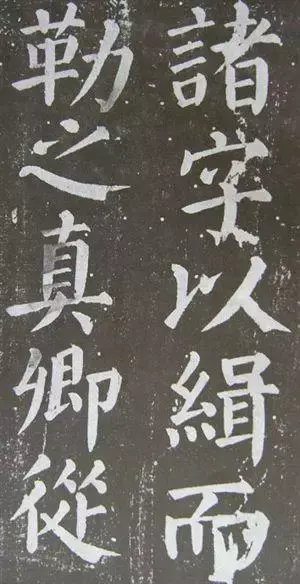 諸字以緝而
勒之真卿從